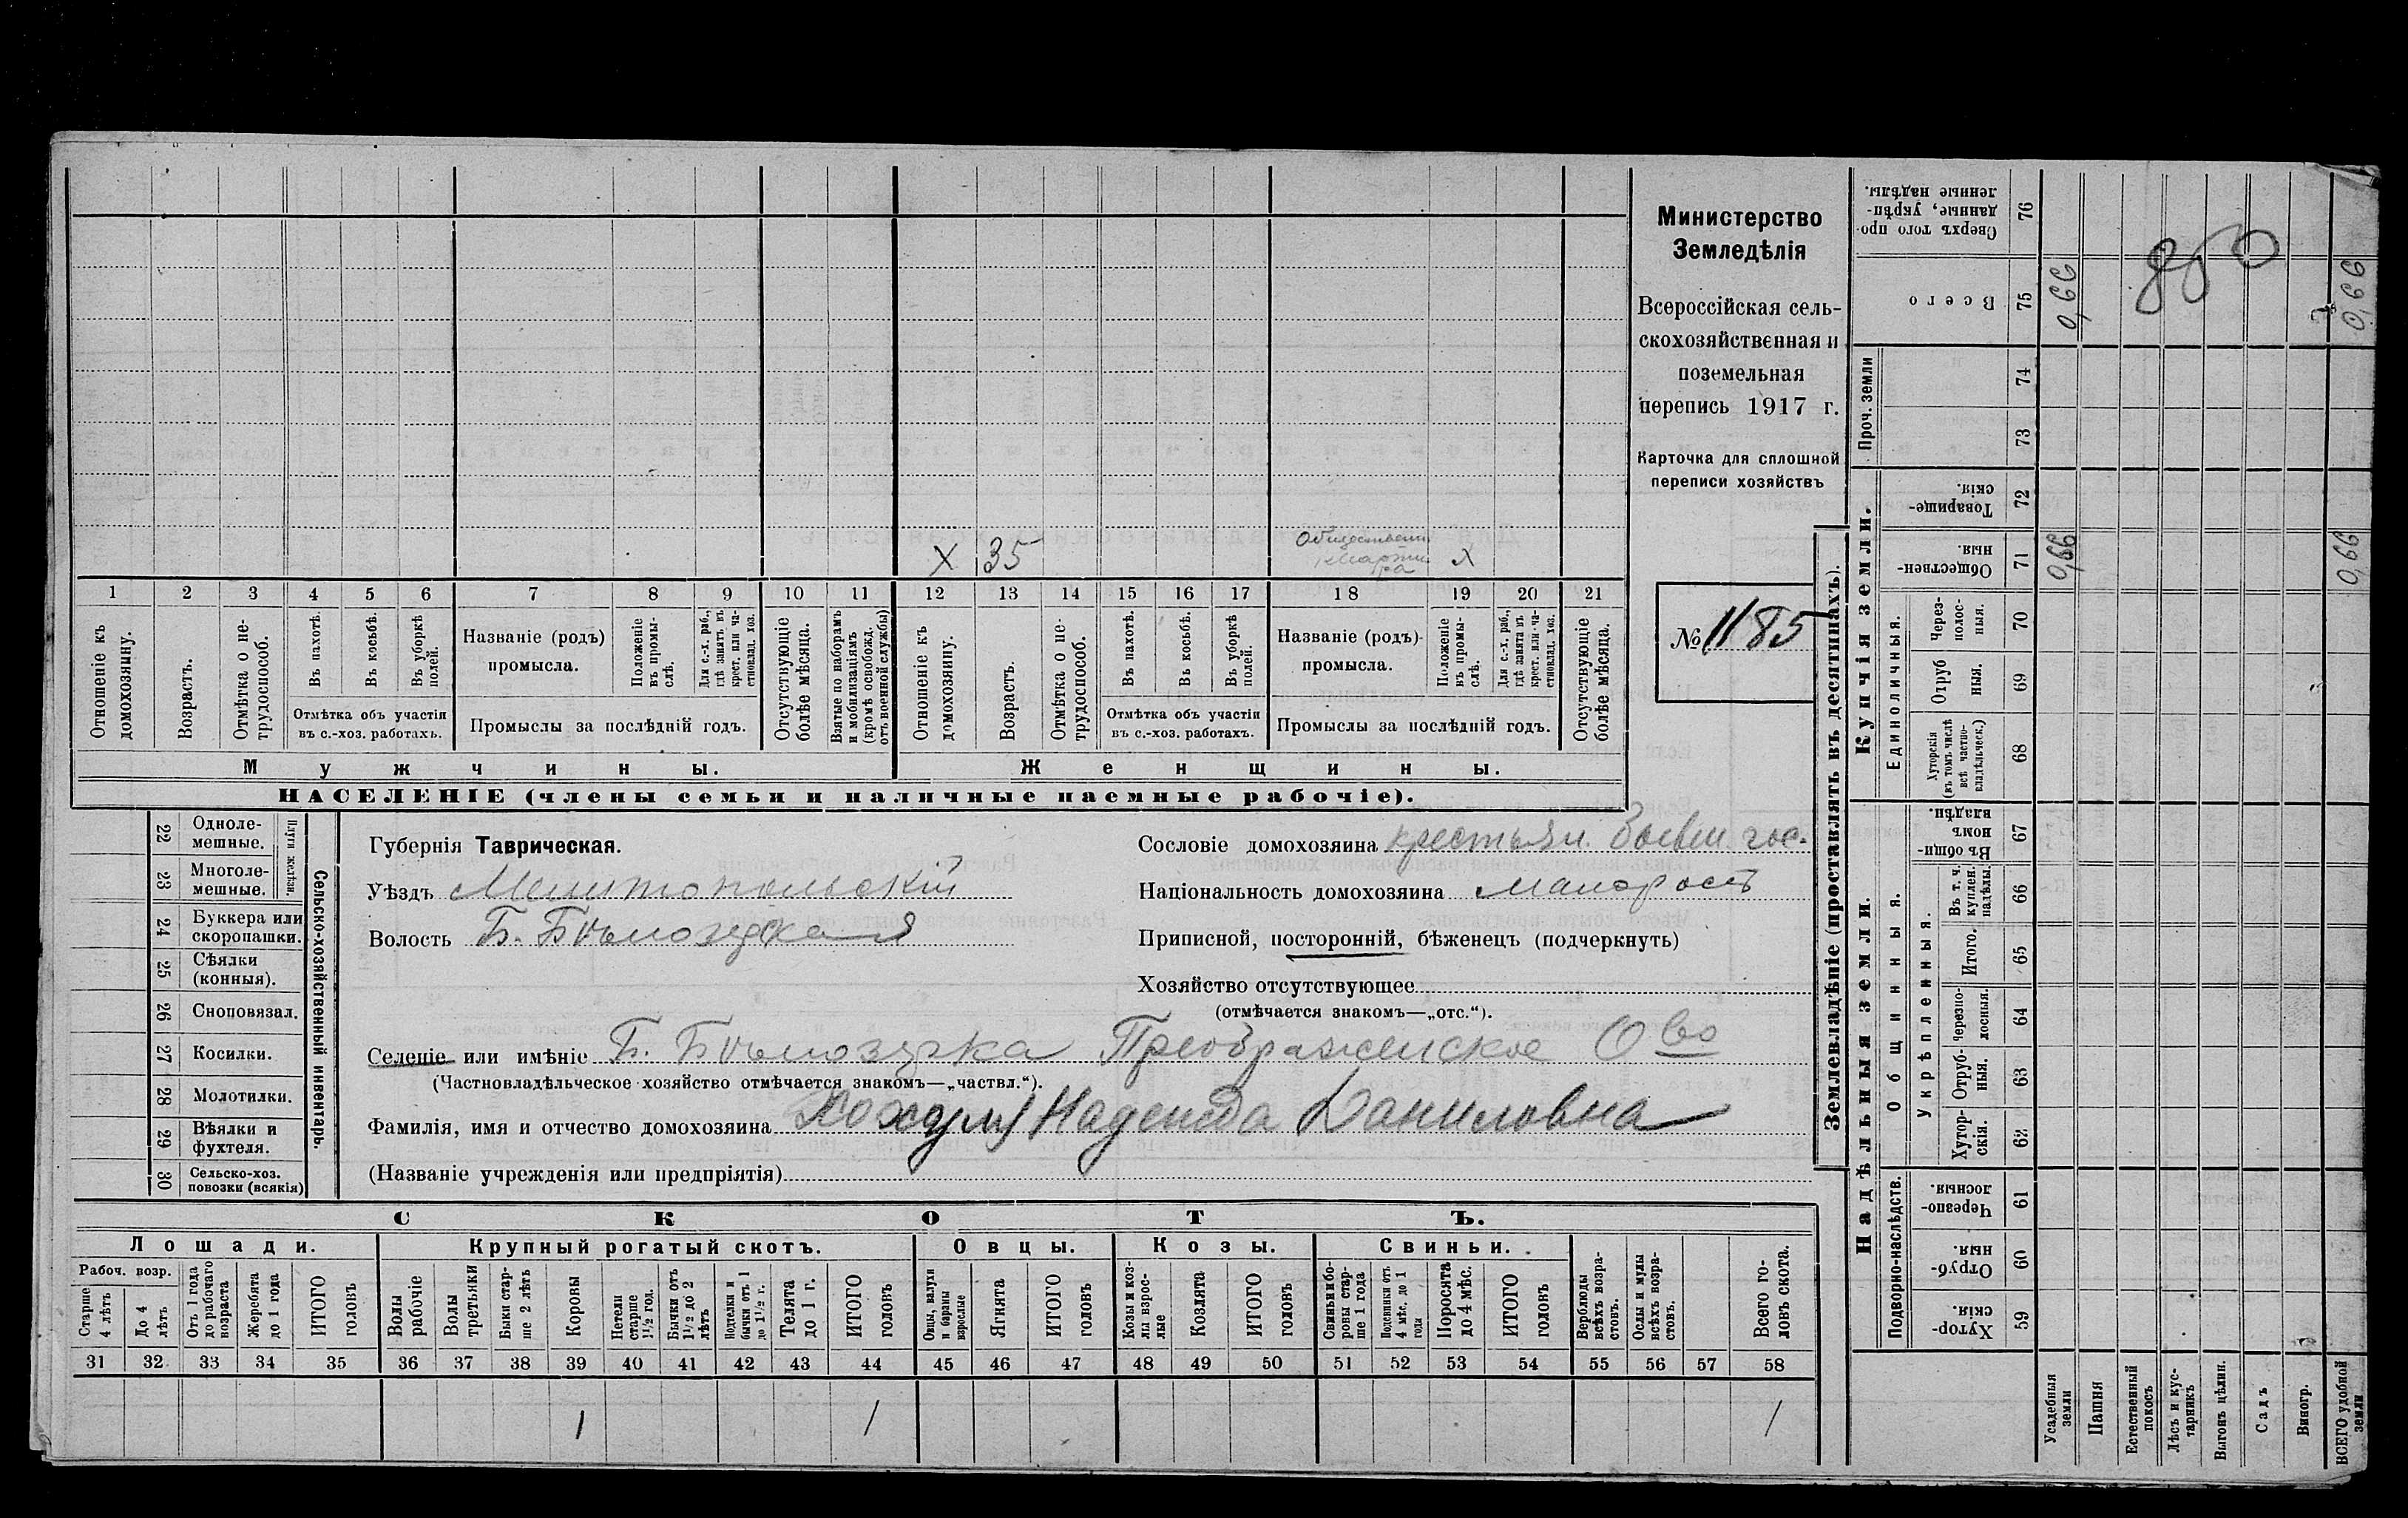 Министерство
Земледѣлія
Всероссійская сель-
скохозяйственная и
поземельная
перепись 1917 г.
Карточка для сплошной
переписи хозяйствъ
№ 1185
Х 35 Обществен кварти ра х
1 2 3 4 5 6 7 8 9 10 11 12 13 14 15 16 17 18 19 20 21
Отношеніе къ домохозяину.
Возрастъ.
Отмѣтка о не-трудоспособ.
Въ пахотѣ.
Въ косьбѣ.
Въ уборкѣ полей.
Отмѣтка объ участіи
въ с.-хоз. работахъ.
Названіе (родъ)
промысла.
Положеніе въ промы-слѣ.
Для с.-х. раб., гдѣ занятъ въ крест. или ча-стновлад. хоз.
Промыслы за послѣдній годъ.
Отсутствующіе болѣе мѣсяца.
Взятые по наборамъ и мобилизаціямъ (кромѣ освобожд. отъ военной службы)
Отношеніе къ домохозяину.
Возрастъ.
Отмѣтка о не-трудоспособ.
Въ пахотѣ.
Въ косьбѣ.
Въ уборкѣ полей.
Отмѣтка объ участіи
въ с.-хоз. работахъ.
Названіе (родъ)
промысла.
Положеніе въ промы-слѣ.
Для с.-х. раб., гдѣ занята въ крест. или ча-стновлад. хоз.
Промыслы за послѣдній годъ.
Отсутствующіе болѣе мѣсяца.
Мужчины.
Женщины.
НАСЕЛЕНІЕ (члены семьи и наличные наемные рабочіе).
22 Одноле-мешные.
23 Многоле-мешные.
Плуги желѣзн.
24 Буккера или скоропашки.
25 Сѣялки (конныя).
26 Сноповязал.
27 Косилки.
28 Молотилки.
29 Вѣялки и фухтеля.
30 Сельско-хоз. повозки (всякія)
Сельско-хозяйственный инвентарь.
Губернія Таврическая.
Уѣздъ Мелитопольскій
Волость Б. Бѣлозерская
Сословіе домохозяина крестьян. бывш. гос.
Національность домохозяина малоросъ
Приписной, посторонній, бѣженецъ (подчеркнуть)
Хозяйство отсутствующее
(отмѣчается знакомъ—„отс.“).
Селеніе или имѣніе Б. Бѣлозерка Преображенское О-во
(Частновладѣльческое хозяйство отмѣчается знакомъ—„частвл.“).
Фамилія, имя и отчество домохозяина Надежда Даниловна
(Названіе учрежденія или предпріятія)
СКОТЪ.
Лошади. Крупный рогатый скотъ. Овцы. Козы. Свиньи.
Рабоч. возр.
Старше 4 лѣтъ
До 4 лѣтъ
Отъ 1 года до рабочаго возраста
Жеребята до 1 года
ИТОГО головъ
Волы рабочіе
Волы третьяки
Быки стар-ше 2 лѣтъ
Коровы
Нетели старше 1½ год.
Бычки отъ 1½ до 2 лѣтъ
Подтелки и бычки отъ 1 до 1½ г.
Телята до 1 г.
ИТОГО головъ
Овцы, валухи и бараны взрослые
Ягнята
ИТОГО головъ
Козы и коз-лы взрос-лые
Козлята
ИТОГО головъ
Свиньи и бо-ровы стар-ше 1 года
Подсвинки отъ 4 мѣс. до 1 года
Поросята до 4 мѣс.
ИТОГО головъ
Верблюды всѣхъ возра-стовъ.
Ослы и мулы всѣхъ возра-стовъ.
Всего го-ловъ скота.
31 32 33 34 35 36 37 38 39 40 41 42 43 44 45 46 47 48 49 50 51 52 53 54 55 56 57 58
1 1 1
Землевладѣніе (проставлять въ десятинахъ).
Надѣльныя земли.
Купчія земли.
Проч. земли
Подворно-наслѣдств.
Общинныя.
Укрѣпленныя.
Единоличныя.
Сверхъ того про-данные, укрѣп-ленные надѣлы. 76
Всего 75
74
73
Товарище-скія. 72
Обществен-ныя. 71
Через-полос-ныя. 70
Отруб ныя. 69
Хуторскія (въ томъ числѣ всѣ частно-владѣльческ.) 68
Въ общи-номъ владѣн. 67
Въ т. ч. куплен. надѣлы. 66
Итого. 65
Черезпо-лосныя. 64
Отруб-ныя. 63
Хутор-скія. 62
Черезпо-лосныя. 61
Отруб-ныя. 60
Хутор-скія. 59
Усадебныя земли
Пашня
Естественный покосъ
Лѣсъ и кус-тарникъ
Выгонъ цѣлин.
Садъ
Виногр.
ВСЕГО удобной земли
0,66 0,66
0,66 0,66